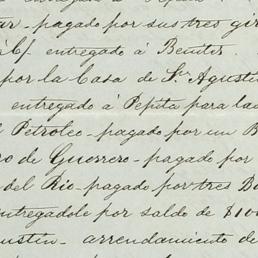 ar - pagado por sus tres gir
á C/ entregado á Benites.
por la Casa de Sr. Agustin
entregado á Pepita para la
l Petroleo - pagado por un B
ro de Guerrero - pagado por
del Rio - pagado por tres Do
entregadole por saldo de $100
gustin - arrendamiento de